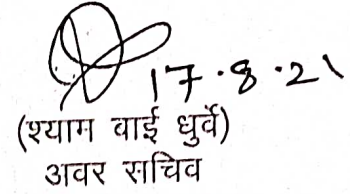 17.8.21
(श्याम बाई धुर्वे)
अवर सचिव